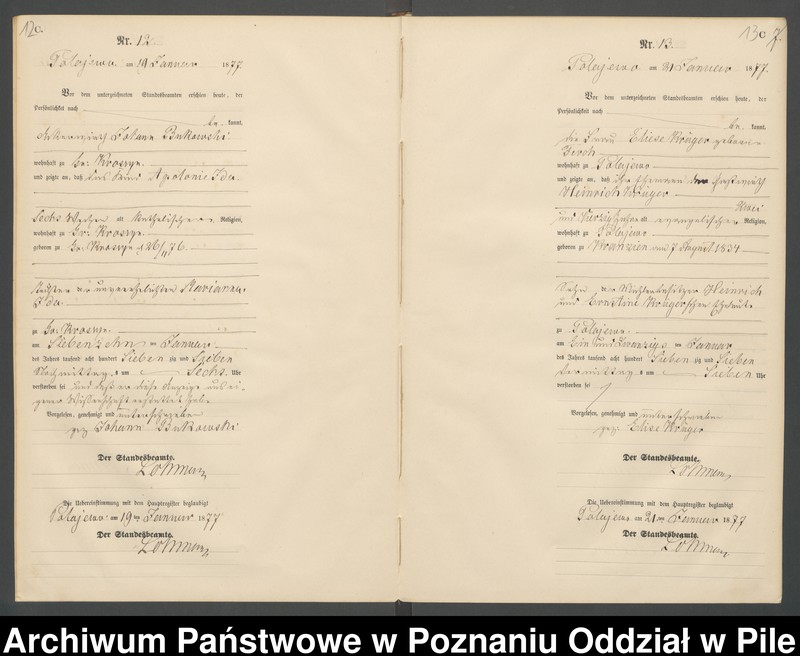 12c.
Nr. 12
Polajewo am 19 Januar 1877.
Vor dem unterzeichneten Standesbeamten erschien heute, der
Persönlichkeit nach
be kannt,
Ackerwirth Johann Bukowski
wohnhaft zu Gr: Krosyn.
und zeigte an, daß das Kind Apolonie Ida
Sechs Wochen alt katholischer Religion,
wohnhaft zu Gr: Krosyn.
geboren zu Gr: Krosyn 26/11 76.
Tochter der unverehelichten Marianna
Ida
zu Gr: Krosyn.
am Siebenzehn ten Januar
des Jahres tausend acht hundert Sieben zig und Sieben
Nachmittag s um Sechs Uhr
verstorben sei und daß er diese Anzeige aus ei-
gener Wissenschaft erstattet habe.
Vorgelesen, genehmigt und unterschrieben
gez Johann Bukowski
Der Standesbeamte.
Die Uebereinstimmung mit dem Hauptregister beglaubigt
Polajewo am 19 ten Januar 1877
Der Standesbeamte.
13c 7.
Nr. 13
Polajewo am 21 Januar 1877.
Vor dem unterzeichneten Standesbeamten erschien heute, der
Persönlichkeit nach
be kannt,
die Frau Eliese Krüger geborene
wohnhaft zu Polajewo
und zeigte an, daß ihr Ehemann der
Heinrich Krüger
Zwei
und Vierzig Jahre alt evangelischer Religion,
wohnhaft zu Polajewo
geboren zu am 7 August 1834
Sohn der Mühlenbesitzer Heinrich
und Ernstine Krügerschen Eheleute
zu Polajewo.
am Ein und Zwanzigs ten Januar
des Jahres tausend acht hundert Sieben zig und Sieben
Vormittag s um Sieben Uhr
verstorben sei
Vorgelesen, genehmigt und unterschrieben
gez Elise Krüger
Der Standesbeamte.
Die Uebereinstimmung mit dem Hauptregister beglaubigt
Polajewo am 21 ten Januar 1877
Der Standesbeamte.
Archiwum Państwowe w Poznaniu Oddział w Pile